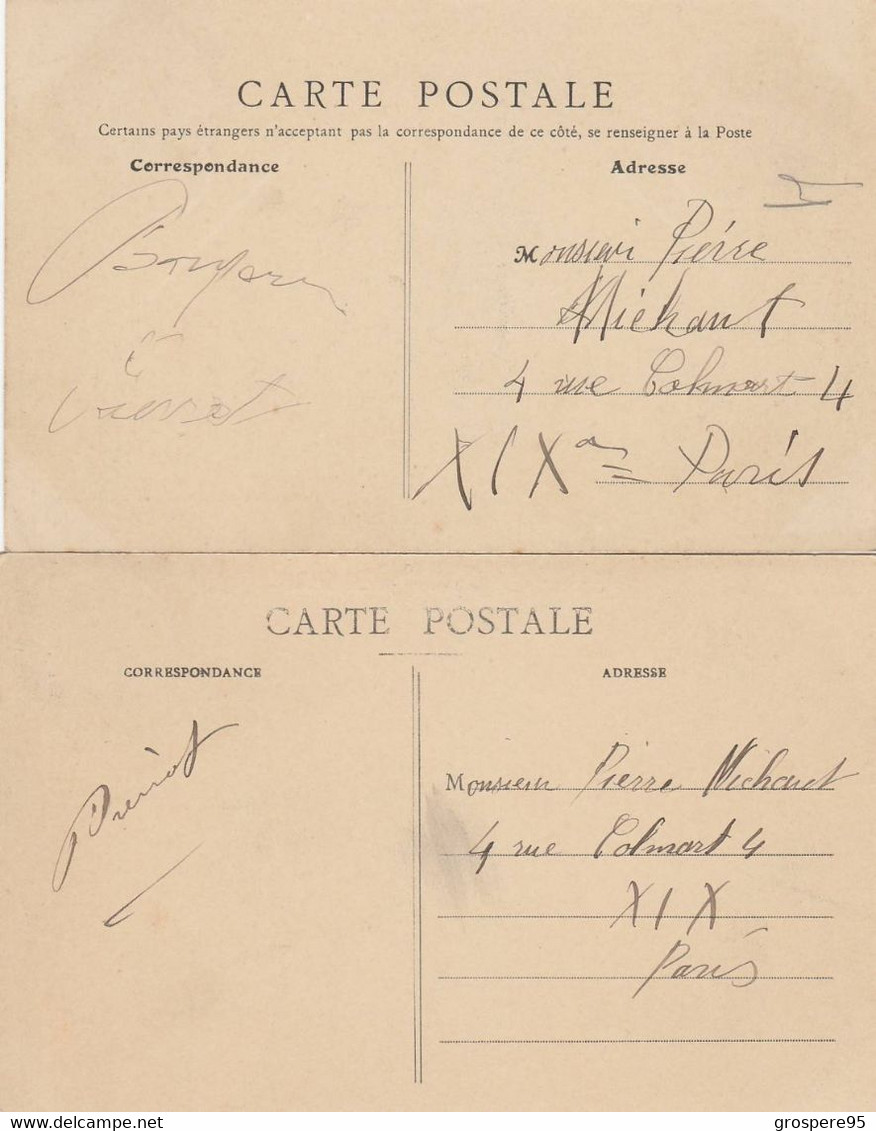 CARTE POSTALE
Certains pays étrangers n'acceptant pas la correspondance de ce côté, se renseigner à la Poste
Correspondance
Adresse
Monsieur Pierre
Michaut
4 rue Colmart 4
XIX Paris
CARTE POSTALE
CORRESPONDANCE
ADRESSE
Monsieur Pierre Michaut
4 rue Colmart 4
XIX
Paris
grospere95